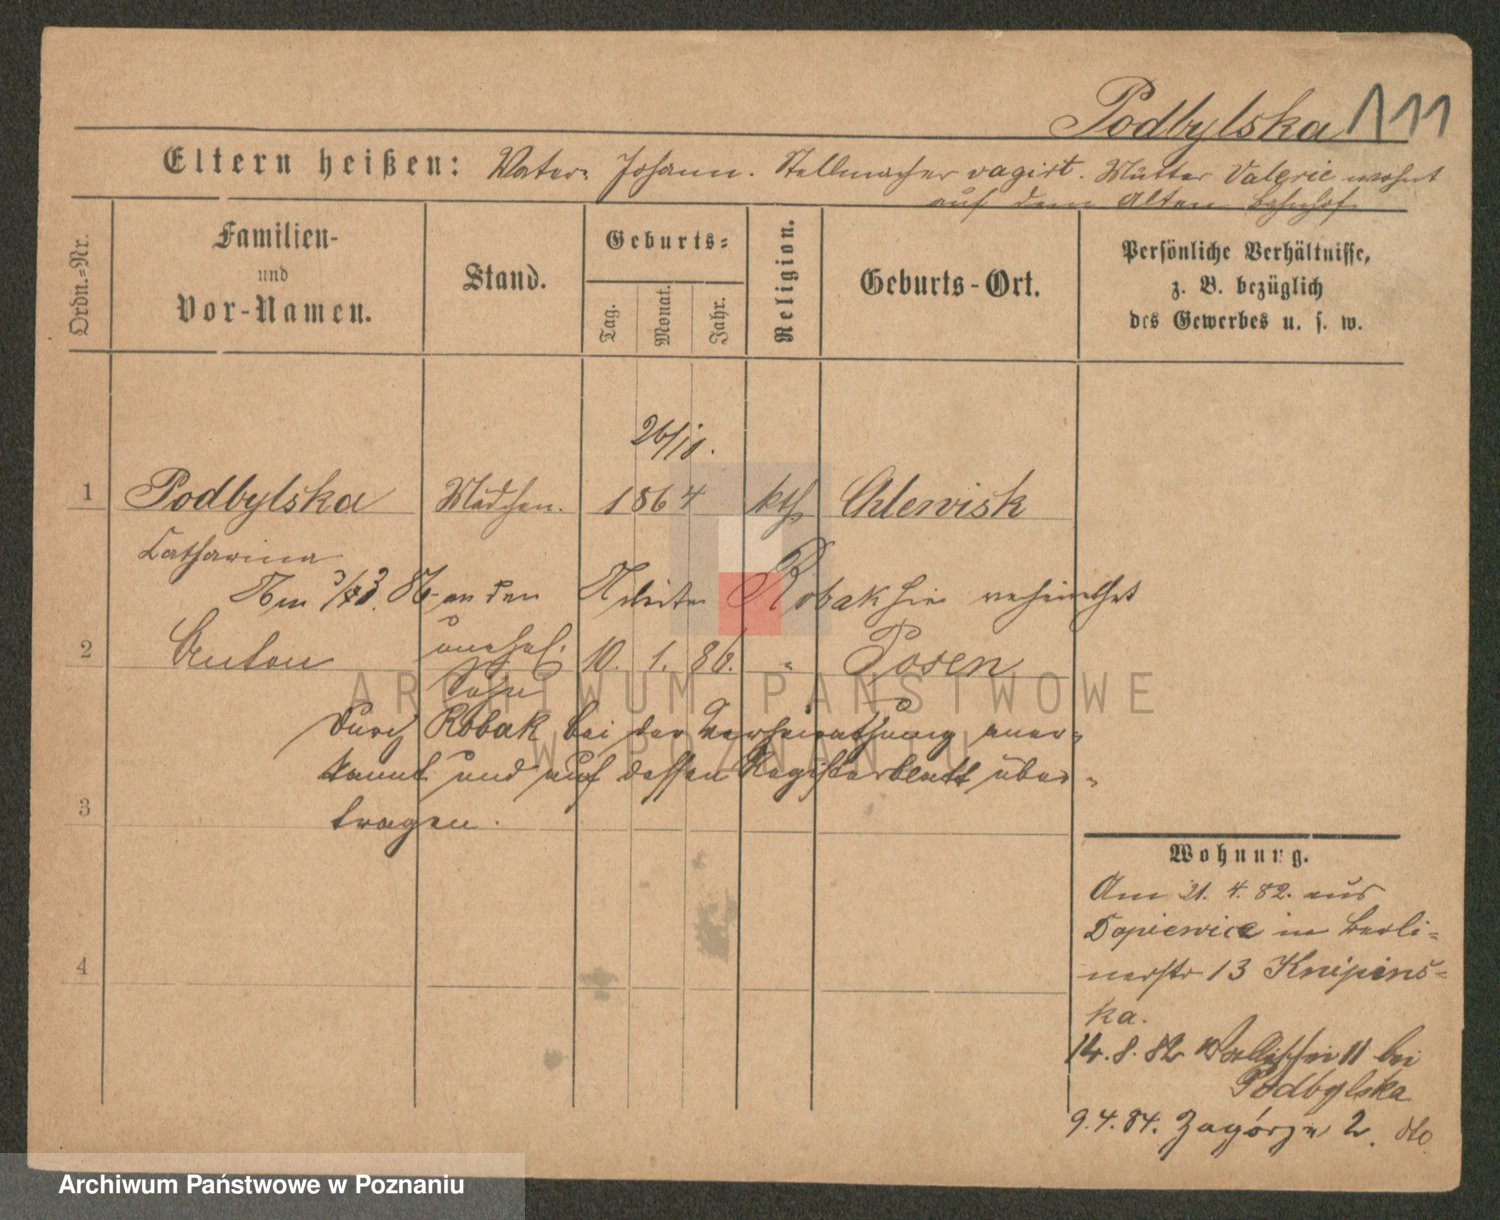 Podbylska 111
Eltern heißen: Vater: Johann. Stellmacher vagirt. Mutter Valerie wohnt
auf dem Alten Bahnhof
Ordn.-Nr.
Familien-
und
Vor-Namen.
Stand.
Geburts-
Tag.
Monat.
Jahr.
Religion.
Geburts-Ort.
Persönliche Verhältnisse,
z. B. bezüglich
des Gewerbes u. s. w.
26/10.
1 Podbylska Mädchen. 1864 kth Chlewisk
Catharina
86 an den Arbeiter Robak hier verheirathet
2 Anton unehel. 10. 1. 86. " Posen
Sohn
durch Robak bei der Verheirathung aner-
kannt und auf dessen Registerblatt über-
3
tragen.
4
Wohnung.
Am 21. 4. 82. aus
Dopiewice in Berli-
nerstr 13 Knipins-
ka.
14. 8. 82 Wallischei 11 bei
Podbylska
9. 4. 84. Zagórze 2. dto
ARCHIWUM PAŃSTWOWE
W POZNANIU
Archiwum Państwowe w Poznaniu